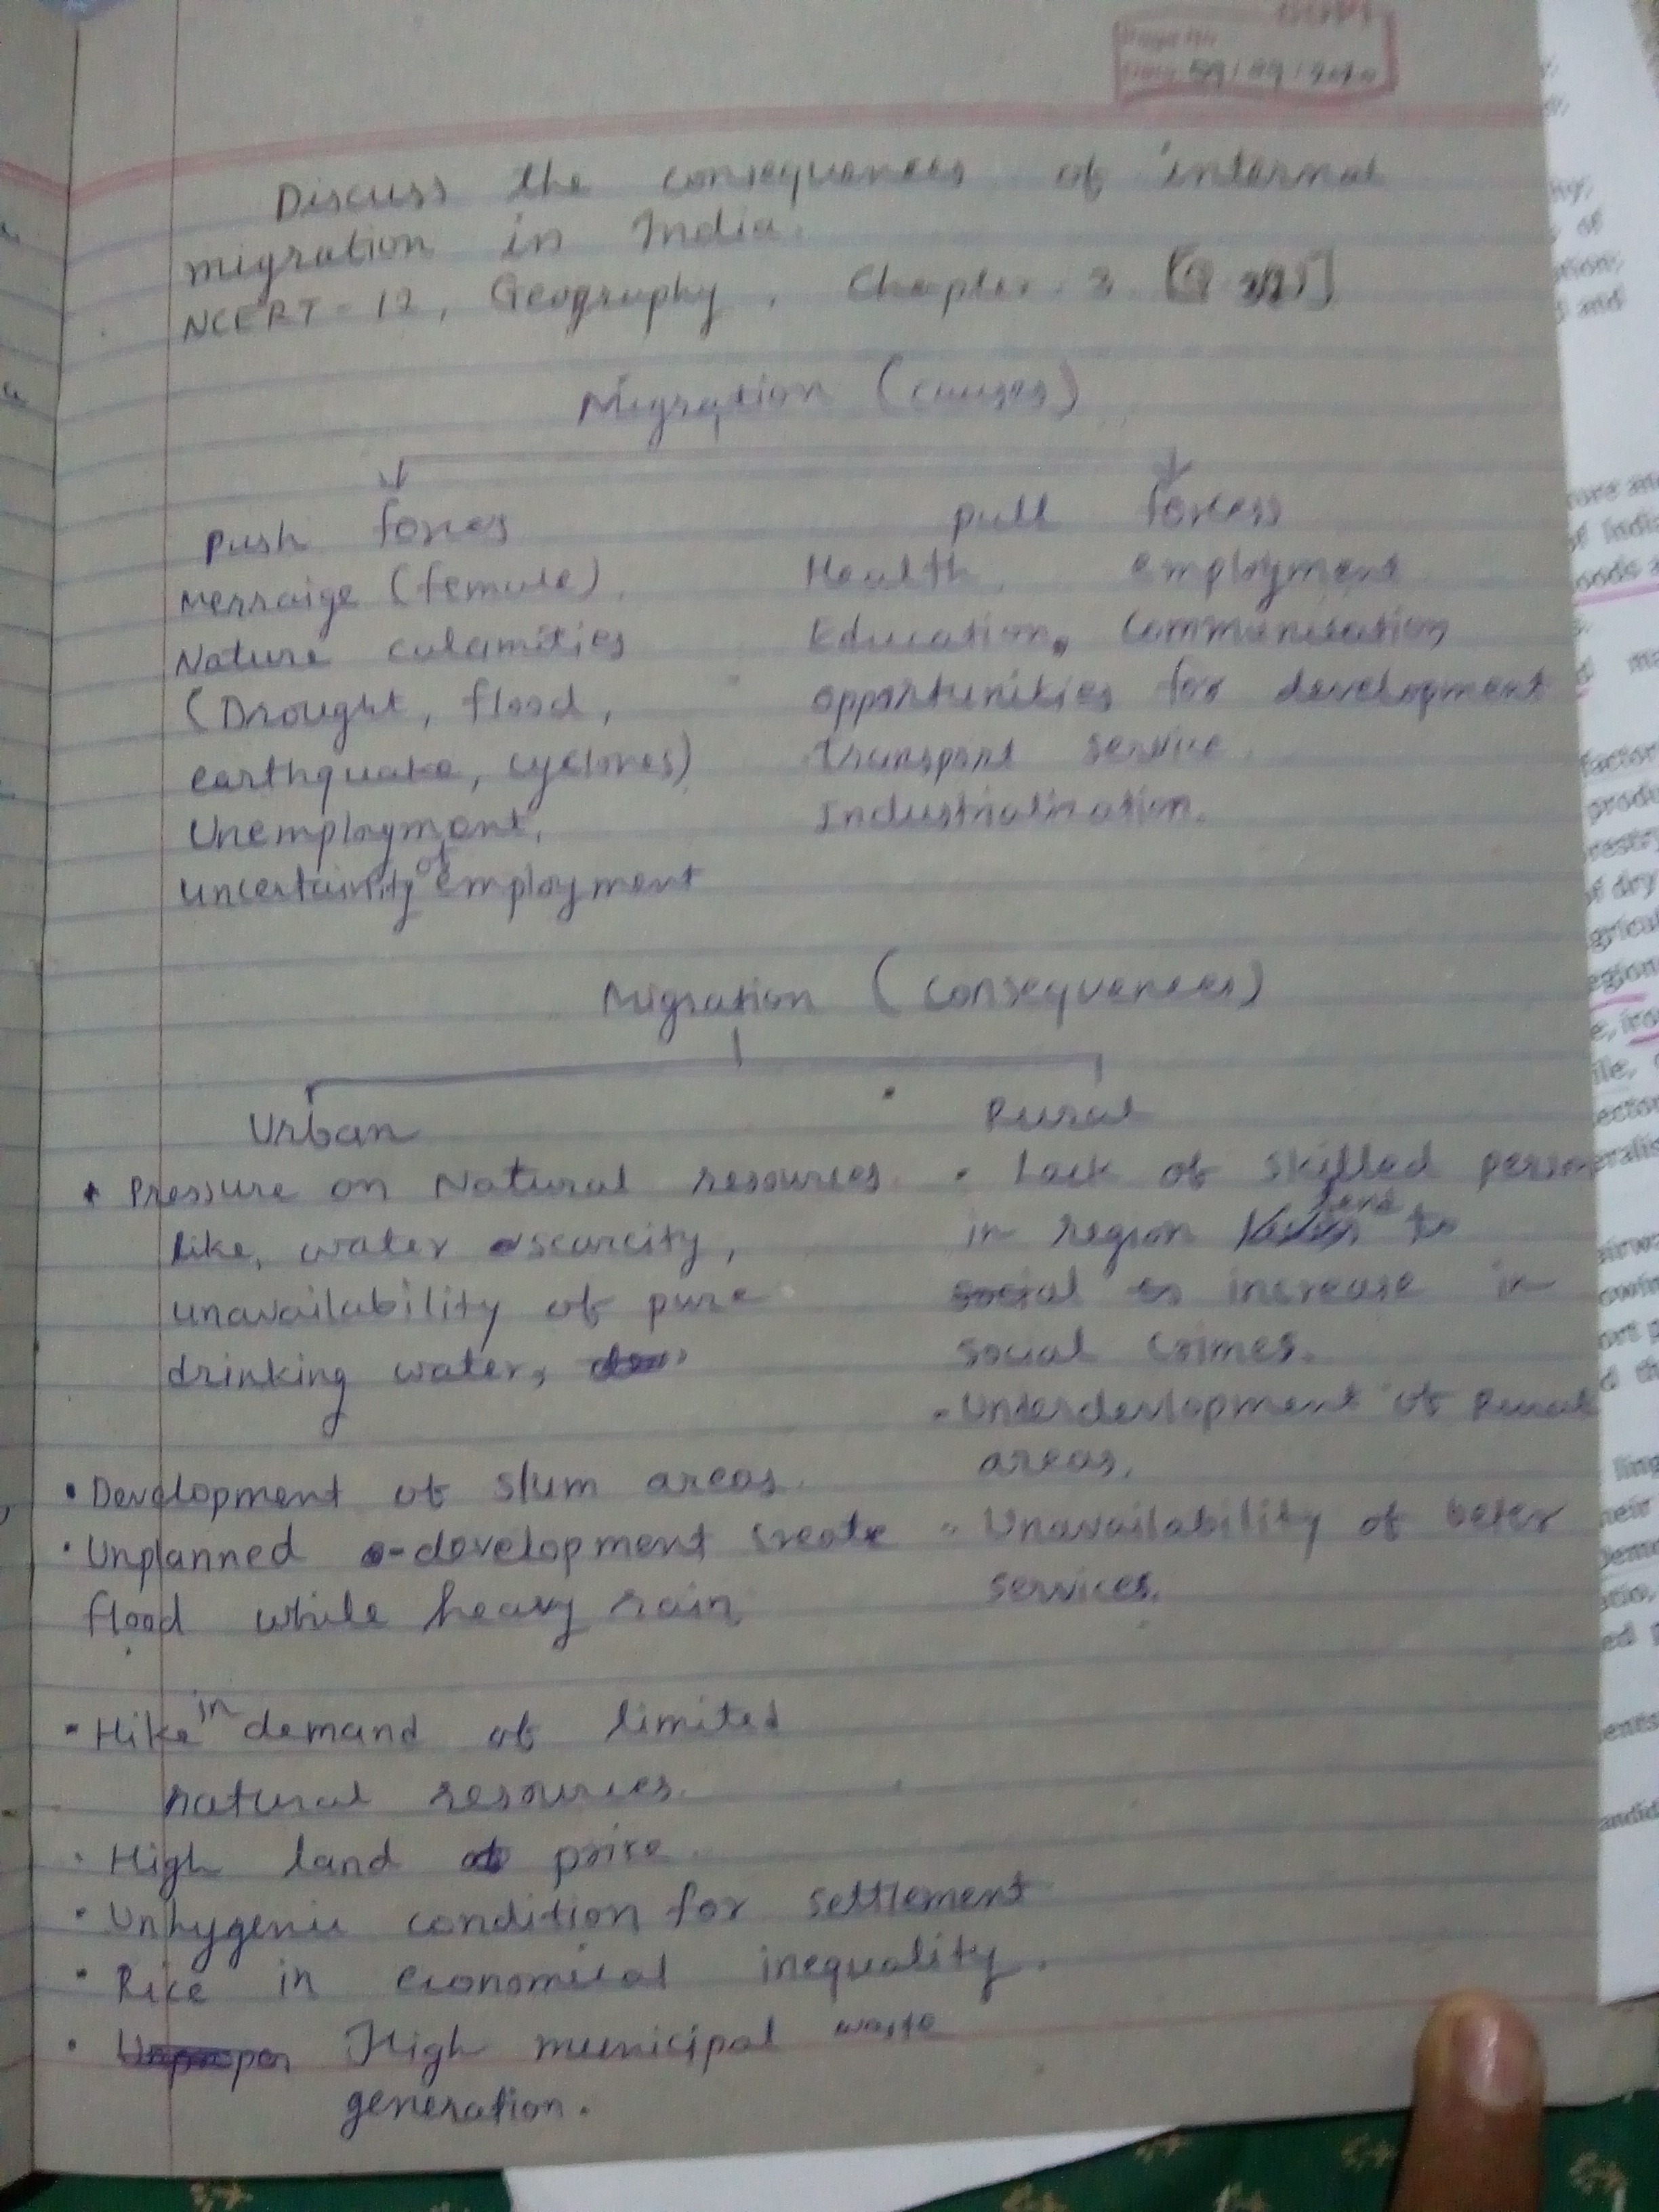 Discuss the consequences of internal
migration in India.
NCERT - 12, Geography, Chapter. 3.
Migration (causes)
Push forces
Merraige (female),
Nature calamities
(Drought, flood,
earthquake, cyclones)
Unemployment,
uncertainity of employment
pull forcess
Health, employment
Education, communication
opportunities for development
transport service.
Industrialination.
Migration (consequences)
Urban
• Pressure on Natural resources
like, water scarcity,
unavailability of pure
drinking water,
• Development of slum areas.
• Unplanned development create
flood while heavy rain,
• Hike in demand of limited
natural resources.
• High land price.
• Unhygenic condition for settlement
• Rice in economical inequality.
• High municipal waste
generation.
Rural
• Lack of skilled person
in region tend to
increase in
social crimes.
• Underdevlopment of Rural
areas,
• Unavailability of beter
services.